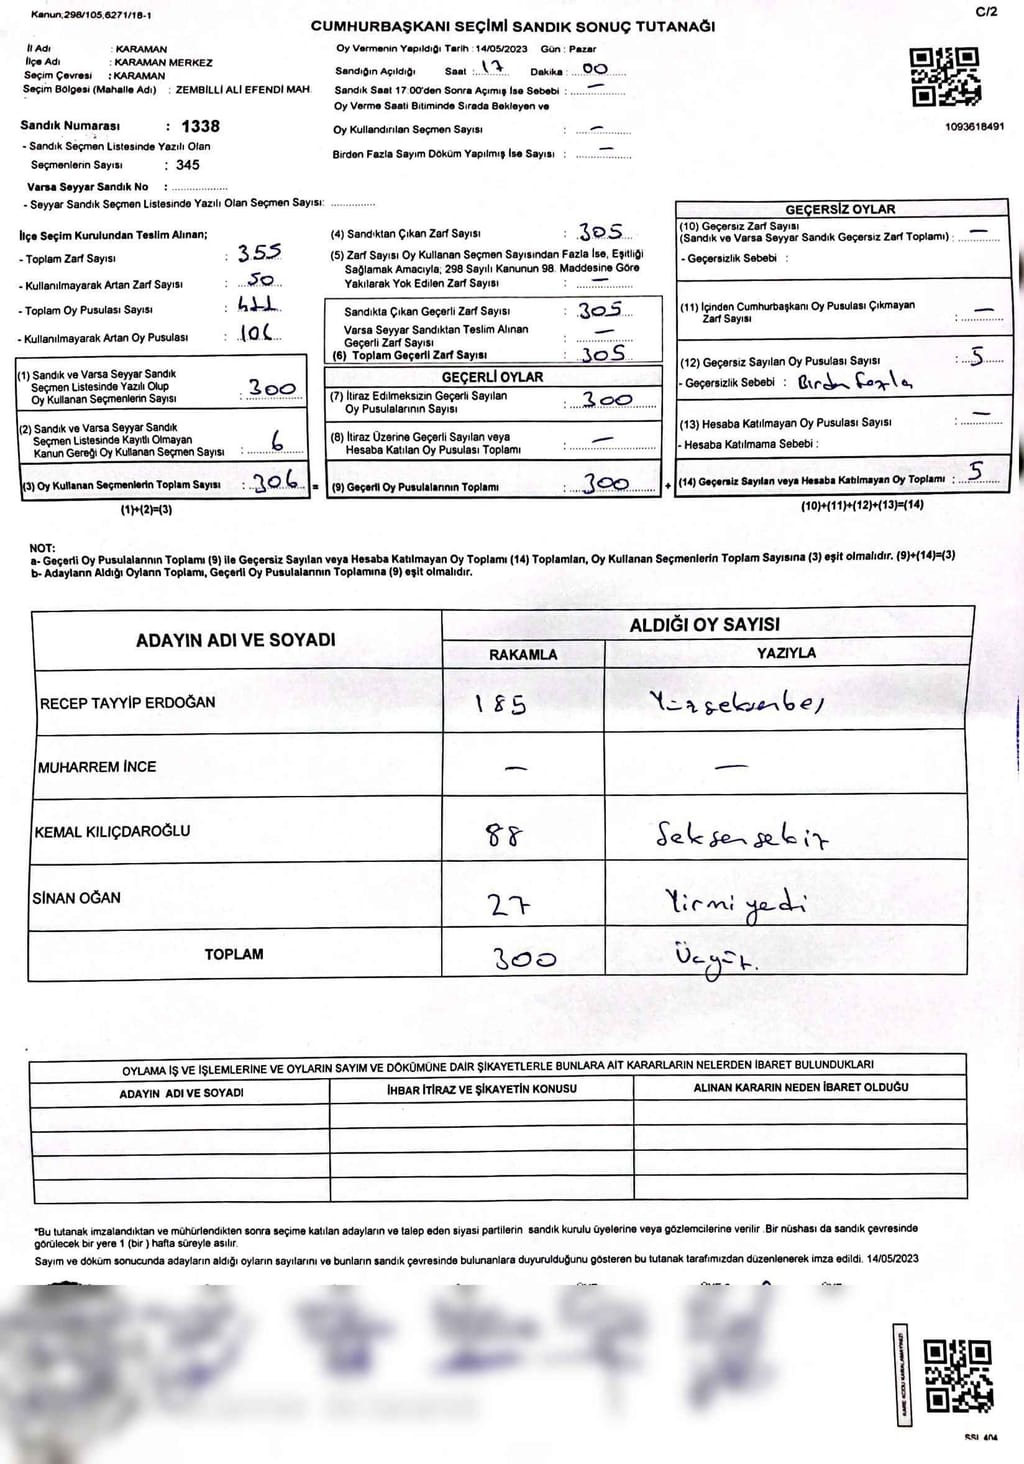 Kanun,298/105,6271/18-1
C/2
CUMHURBAŞKANI SEÇİMİ SANDIK SONUÇ TUTANAĞI
İl Adı : KARAMAN
İlçe Adı : KARAMAN MERKEZ
Seçim Çevresi : KARAMAN
Seçim Bölgesi (Mahalle Adı) : ZEMBİLLİ ALİ EFENDİ MAH.
Oy Vermenin Yapıldığı Tarih : 14/05/2023 Gün : Pazar
Sandığın Açıldığı Saat : 17 Dakika : 00
Sandık Saat 17.00'den Sonra Açımış İse Sebebi : —
Oy Verme Saati Bitiminde Sırada Bekleyen ve
Oy Kullandırılan Seçmen Sayısı : —
Birden Fazla Sayım Döküm Yapılmış İse Sayısı : —
1093618491
Sandık Numarası : 1338
- Sandık Seçmen Listesinde Yazılı Olan
Seçmenlerin Sayısı : 345
Varsa Seyyar Sandık No : ..................
- Seyyar Sandık Seçmen Listesinde Yazılı Olan Seçmen Sayısı: ..............
İlçe Seçim Kurulundan Teslim Alınan;
- Toplam Zarf Sayısı : 355
- Kullanılmayarak Artan Zarf Sayısı : 50
- Toplam Oy Pusulası Sayısı : 411
- Kullanılmayarak Artan Oy Pusulası : 106
(1) Sandık ve Varsa Seyyar Sandık
Seçmen Listesinde Yazılı Olup
Oy Kullanan Seçmenlerin Sayısı : 300
(2) Sandık ve Varsa Seyyar Sandık
Seçmen Listesinde Kayıtlı Olmayan
Kanun Gereği Oy Kullanan Seçmen Sayısı : 6
(3) Oy Kullanan Seçmenlerin Toplam Sayısı : 306 =
(1)+(2)=(3)
(4) Sandıktan Çıkan Zarf Sayısı : 305
(5) Zarf Sayısı Oy Kullanan Seçmen Sayısından Fazla İse, Eşitliği
Sağlamak Amacıyla; 298 Sayılı Kanunun 98. Maddesine Göre
Yakılarak Yok Edilen Zarf Sayısı : —
Sandıkta Çıkan Geçerli Zarf Sayısı : 305
Varsa Seyyar Sandıktan Teslim Alınan
Geçerli Zarf Sayısı : —
(6) Toplam Geçerli Zarf Sayısı : 305
GEÇERLİ OYLAR
(7) İtiraz Edilmeksizin Geçerli Sayılan
Oy Pusulalarının Sayısı : 300
(8) İtiraz Üzerine Geçerli Sayılan veya
Hesaba Katılan Oy Pusulası Toplamı : —
(9) Geçerli Oy Pusulalarının Toplamı : 300 +
GEÇERSİZ OYLAR
(10) Geçersiz Zarf Sayısı
(Sandık ve Varsa Seyyar Sandık Geçersiz Zarf Toplamı) : —
- Geçersizlik Sebebi :
(11) İçinden Cumhurbaşkanı Oy Pusulası Çıkmayan
Zarf Sayısı : —
(12) Geçersiz Sayılan Oy Pusulası Sayısı : 5
- Geçersizlik Sebebi : Birden fazla
(13) Hesaba Katılmayan Oy Pusulası Sayısı : —
- Hesaba Katılmama Sebebi :
(14) Geçersiz Sayılan veya Hesaba Katılmayan Oy Toplamı : 5
(10)+(11)+(12)+(13)=(14)
NOT:
a- Geçerli Oy Pusulalarının Toplamı (9) ile Geçersiz Sayılan veya Hesaba Katılmayan Oy Toplamı (14) Toplamları, Oy Kullanan Seçmenlerin Toplam Sayısına (3) eşit olmalıdır. (9)+(14)=(3)
b- Adayların Aldığı Oyların Toplamı, Geçerli Oy Pusulalarının Toplamına (9) eşit olmalıdır.
ADAYIN ADI VE SOYADI
ALDIĞI OY SAYISI
RAKAMLA YAZIYLA
RECEP TAYYİP ERDOĞAN 185 Yüzseksenbeş
MUHARREM İNCE — —
KEMAL KILIÇDAROĞLU 88 Seksensekiz
SİNAN OĞAN 27 Yirmi yedi
TOPLAM 300 Üçyüz.
OYLAMA İŞ VE İŞLEMLERİNE VE OYLARIN SAYIM VE DÖKÜMÜNE DAİR ŞİKAYETLERLE BUNLARA AİT KARARLARIN NELERDEN İBARET BULUNDUKLARI
ADAYIN ADI VE SOYADI İHBAR İTİRAZ VE ŞİKAYETİN KONUSU ALINAN KARARIN NEDEN İBARET OLDUĞU
*Bu tutanak imzalandıktan ve mühürlendikten sonra seçime katılan adayların ve talep eden siyasi partilerin sandık kurulu üyelerine veya gözlemcilerine verilir .Bir nüshası da sandık çevresinde
görülecek bir yere 1 (bir ) hafta süreyle asılır.
Sayım ve döküm sonucunda adayların aldığı oyların sayılarını ve bunların sandık çevresinde bulunanlara duyurulduğunu gösteren bu tutanak tarafımızdan düzenlenerek imza edildi. 14/05/2023
KARE KODU KARALAMAYINIZ!